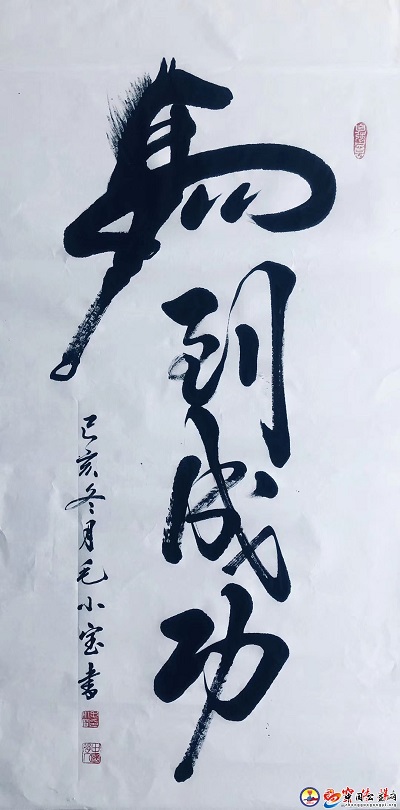 馬到成功
己亥冬月毛小宝書